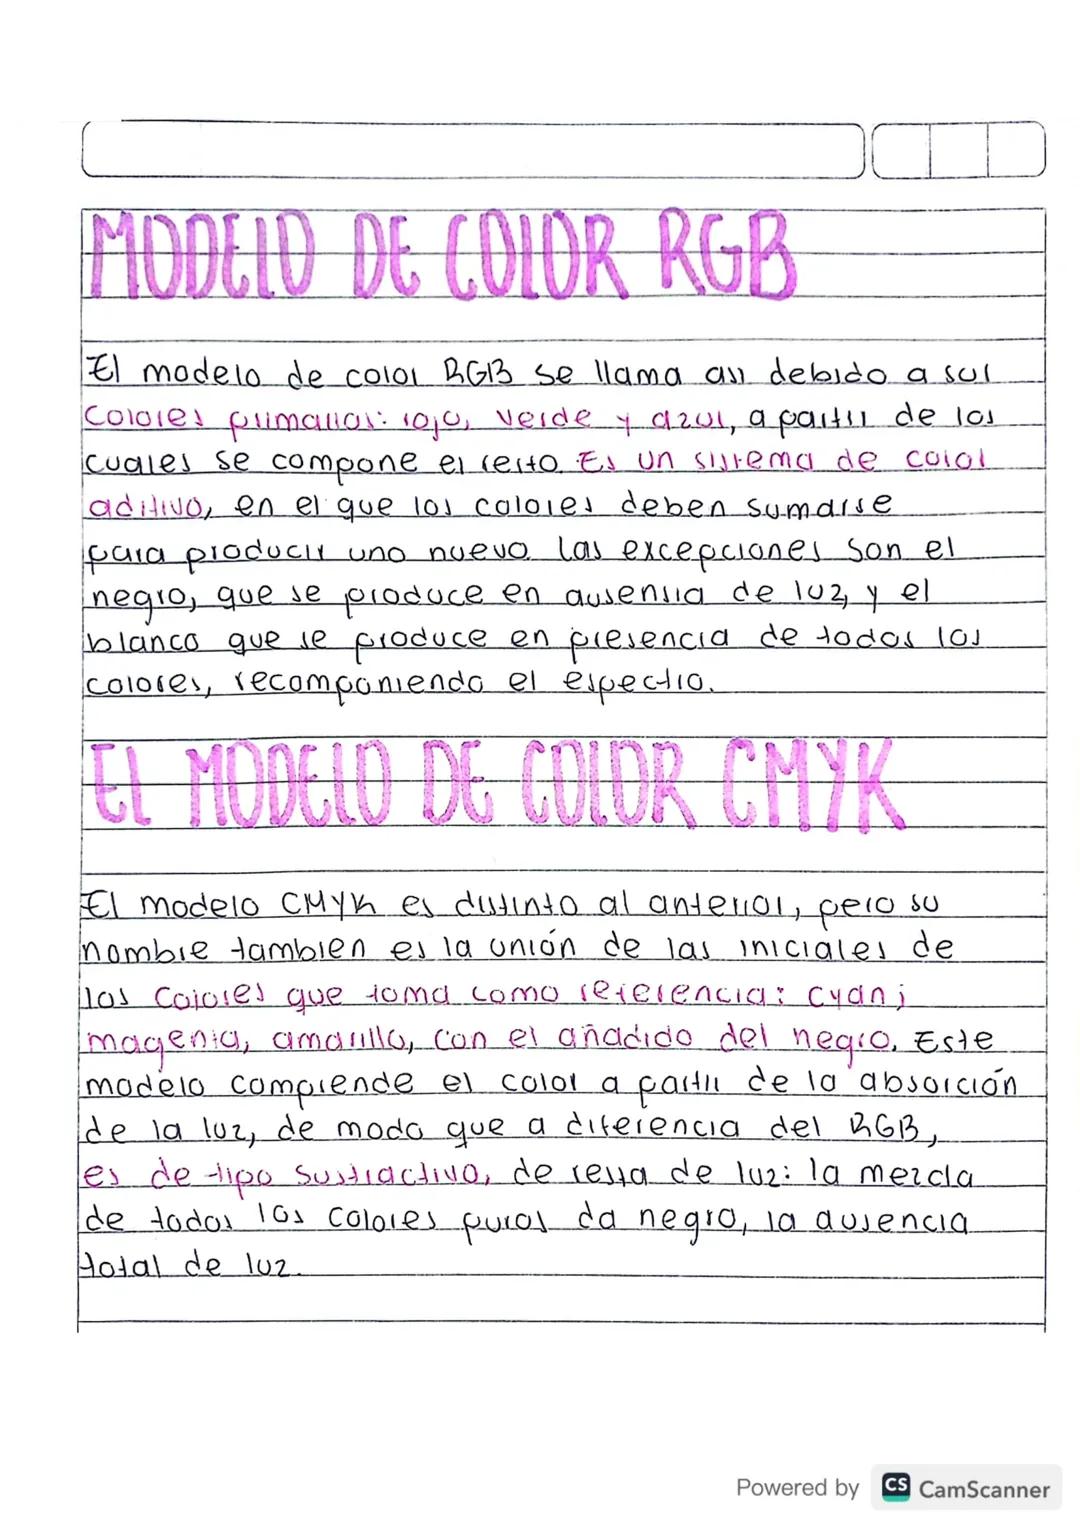 MODELO DE COLOR RGB
El modelo de color RGB se llama asi debido a sus
colores primarios: rojo, verde y azul, a partir de los
cuales se compone el resto. Es un sistema de color
aditivo, en el que los colores deben sumarse
para producir uno nuevo. Las excepciones son el
negro, que se produce en ausensia de luz, y el
blanco que se produce en presencia de todos los
colores, recomponiendo el espectro.
EL MODELO DE COLOR CMYK
El modelo CMYK es distinto al anterior, pero su
nombre tambien es la unión de las iniciales de
los colores que toma como referencia: cyan;
magenta, amarillo, con el añadido del negro. Este
modelo comprende el color a partir de la absorción
de la luz, de modo que a diferencia del RGB,
es de tipo sustractivo, de resta de luz: la mezcla
de todos los colores puros da negro, la ausencia
total de luz.
Powered by CS CamScanner